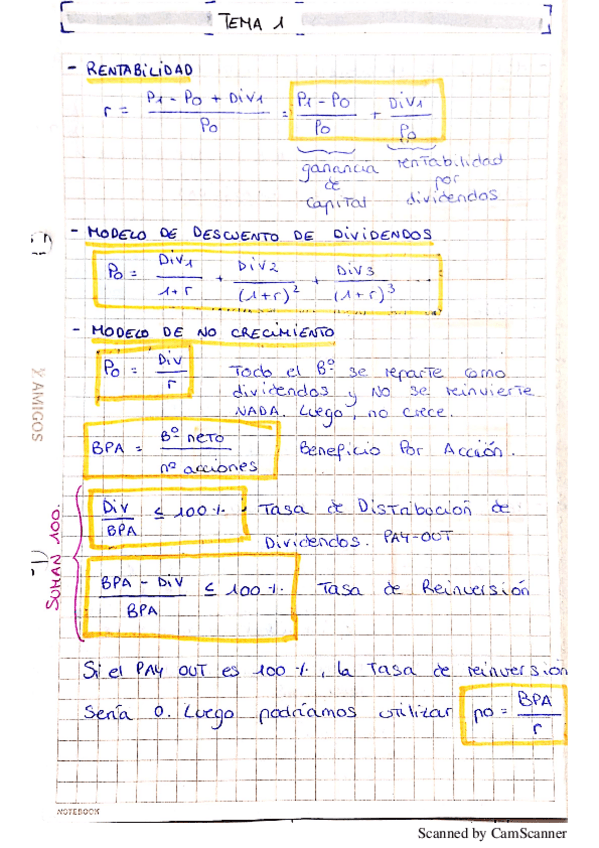 TEMA 1
- RENTABILIDAD
r = P1 - P0 + Div1 / P0 = P1 - P0 / P0 + Div1 / P0
ganancia de capital
rentabilidad por dividendos
- MODELO DE DESCUENTO DE DIVIDENDOS
P0 = Div1 / 1+r + Div2 / (1+r)² + Div3 / (1+r)³
- MODELO DE NO CRECIMIENTO
P0 = Div / r
Todo el Bº se reparte como
dividendos y NO se reinvierte
NADA. Luego, no crece.
BPA = Bº neto / nº acciones
Beneficio Por Acción.
SUMAN 100.
Div / BPA ≤ 100 %. Tasa de Distribución de
Dividendos. PAY-OUT
BPA - Div / BPA ≤ 100 %. Tasa de Reinversión
Si el PAY OUT es 100 %, la Tasa de reinversión
sería 0. Luego podríamos utilizar p0 = BPA / r
Y AMIGOS
NOTEBOOK
Scanned by CamScanner